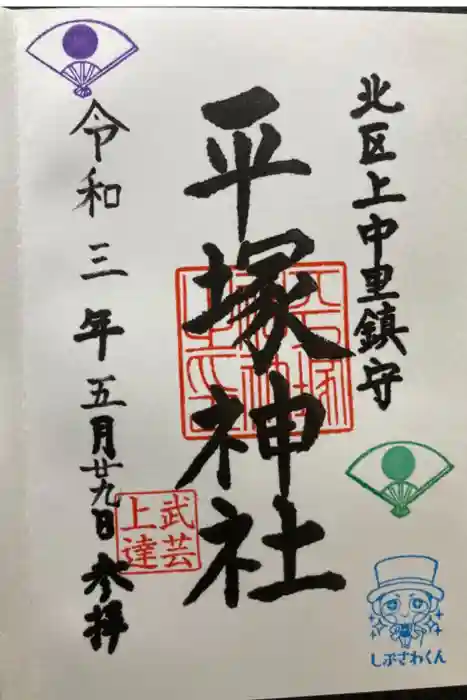 北区上中里鎮守
平塚神社
武芸
上達
令和三年五月廿九日参拝
しぶさわくん